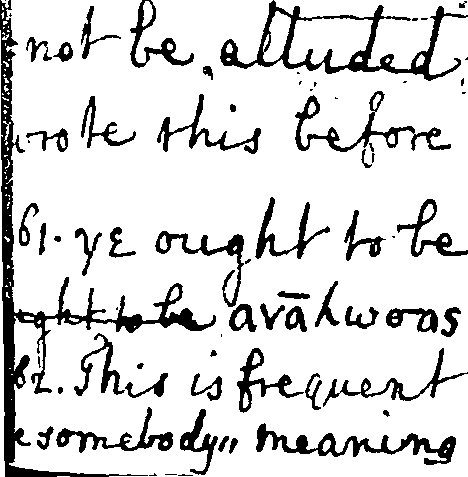 not be alluded
wrote this before
61. yɛ ought to be
ought to be avāhwoas
62. This is frequent
somebody" meaning